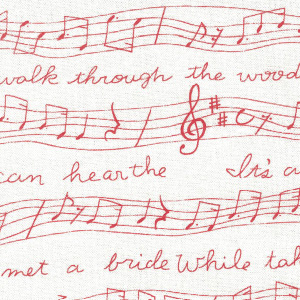 walk through the wood
can hear the It's a
met a bride While tak